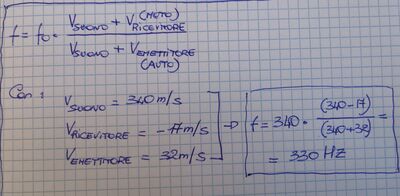 f = f₀ · (V_SUONO + V_RICEVITORE (MOTO)) / (V_SUONO + V_EMETTITORE (AUTO))
Con:
V_SUONO = 340 m/s
V_RICEVITORE = -17 m/s
V_EMETTITORE = 32 m/s
⇒ f = 340 · (340-17) / (340+32) =
= 330 HZ